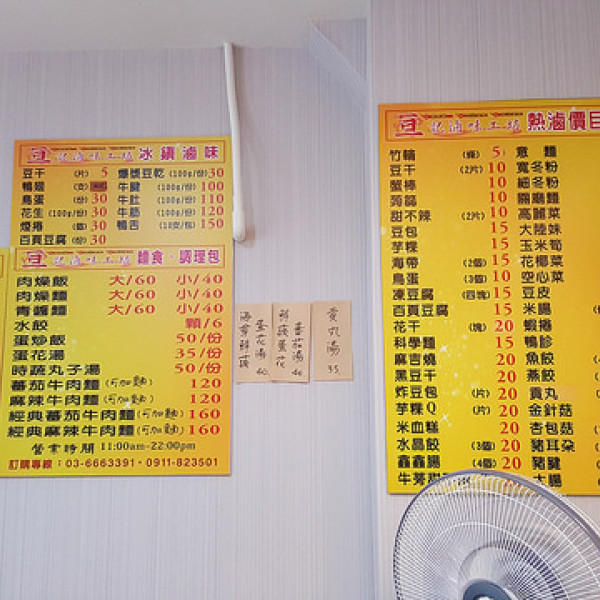 豆 記滷味工場 冰鎮滷味
豆干 (片) 5 爆漿豆乾 (100g/份) 30
鴨翅 (支) 牛腱 (100g/份) 100
鳥蛋 (份) 30 牛肚 (100g/份) 110
花生 (100g/份) 30 牛筋 (100g/份) 120
(份) 30 鴨舌 (10支/份) 150
百頁豆腐 (份) 30
豆 記滷味工場 麵食·調理包
肉燥飯 大/60 小/40
肉燥麵 大/60 小/40
青醬麵 大/60 小/40
水餃 顆/6
蛋炒飯 50/份
蛋花湯 35/份
時蔬丸子湯 50/份
蕃茄牛肉麵(可加麵) 120
麻辣牛肉麵(可加麵) 120
經典蕃茄牛肉麵(可加麵) 160
經典麻辣牛肉麵(可加麵) 160
營業時間 11:00am-22:00pm
訂購專線:03-6663391·0911-823501
海帶鮮菇
蛋花湯 40.
鮮菇蛋花
蕃茄湯 40
貢丸湯
35.
豆 記滷味工場 熱滷價目
竹輪 (條) 5 意麵
豆干 (2片) 10 寬冬粉
蟹棒 10 細冬粉
蒟蒻 10 關廟麵
甜不辣 (2片) 10 高麗菜
豆包 15 大陸妹
芋粿 15 玉米筍
海帶 (2個) 15 花椰菜
鳥蛋 (3個) 10 空心菜
凍豆腐 (四塊) 15 豆皮
百頁豆腐 15 米腸
花干 (塊) 20 蝦捲
科學麵 15 鴨胗
麻吉燒 20 魚餃
黑豆干 20 燕餃
炸豆包 (片) 20 貢丸
芋粿Q (片) 20 金針菇
米血糕 20 杏包菇
水晶餃 (3個) 20 豬耳朵
鑫鑫腸 (4個) 20 豬腱
牛蒡甜 20 大腸